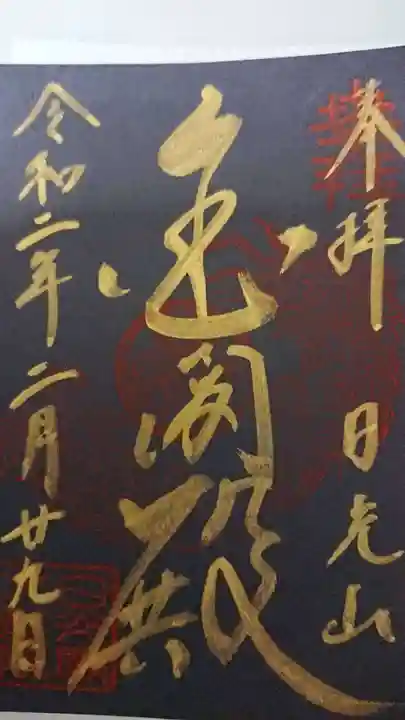 奉拝 日光山
金閣殿
令和二年二月廿九日